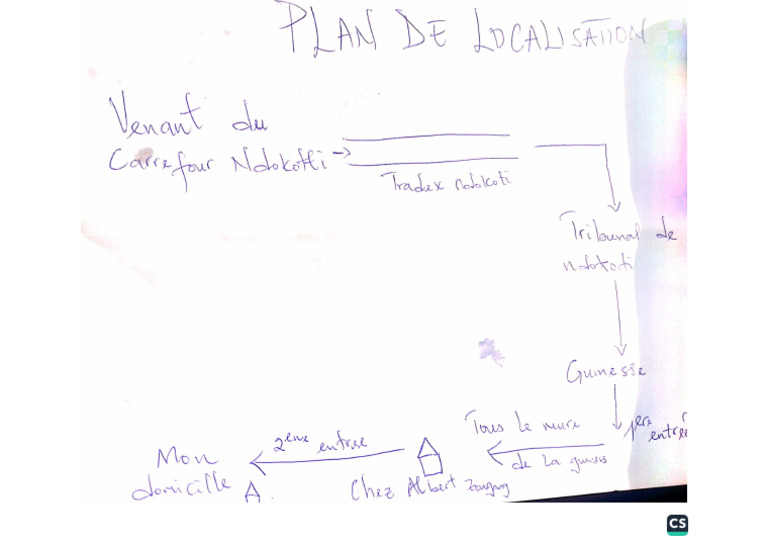 PLAN DE LOCALISATION
Venant du
Carrefour Ndokotti
Tradex ndokoti
Tribunal de
ndokoti
Guinesse
1ere
entrée
Tous le mure
de la
2eme entree
Chez Albert
Mon
domicille A.
CS